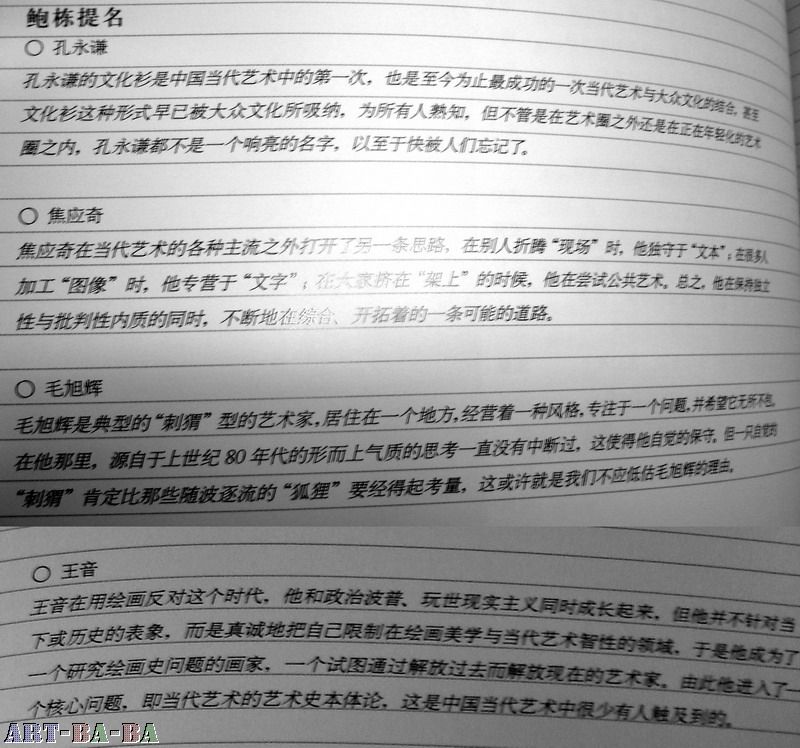 鲍栋提名
○ 孔永谦
孔永谦的文化衫是中国当代艺术中的第一次，也是至今为止最成功的一次当代艺术与大众文化的结合，甚至
文化衫这种形式早已被大众文化所吸纳，为所有人熟知，但不管是在艺术圈之外还是在正在年轻化的艺术
圈之内，孔永谦都不是一个响亮的名字，以至于快被人们忘记了。
○ 焦应奇
焦应奇在当代艺术的各种主流之外打开了另一条思路，在别人折腾“现场”时，他独守于“文本”；在很多人
加工“图像”时，他专营于“文字”；在大家挤在“架上”的时候，他在尝试公共艺术。总之，他在保持独立
性与批判性内质的同时，不断地在综合、开拓着的一条可能的道路。
○ 毛旭辉
毛旭辉是典型的“刺猬”型的艺术家，居住在一个地方，经营着一种风格，专注于一个问题，并希望它无所不包。
在他那里，源自于上世纪 80 年代的形而上气质的思考一直没有中断过，这使得他自觉的保守。但一只自觉的
“刺猬”肯定比那些随波逐流的“狐狸”要经得起考量，这或许就是我们不应低估毛旭辉的理由。
○ 王音
王音在用绘画反对这个时代，他和政治波普、玩世现实主义同时成长起来，但他并不针对当
下或历史的表象，而是真诚地把自己限制在绘画美学与当代艺术智性的领域，于是他成为了
一个研究绘画史问题的画家，一个试图通过解放过去而解放现在的艺术家。由此他进入了一
个核心问题，即当代艺术的艺术史本体论，这是中国当代艺术中很少有人触及到的。
ART-BA-BA